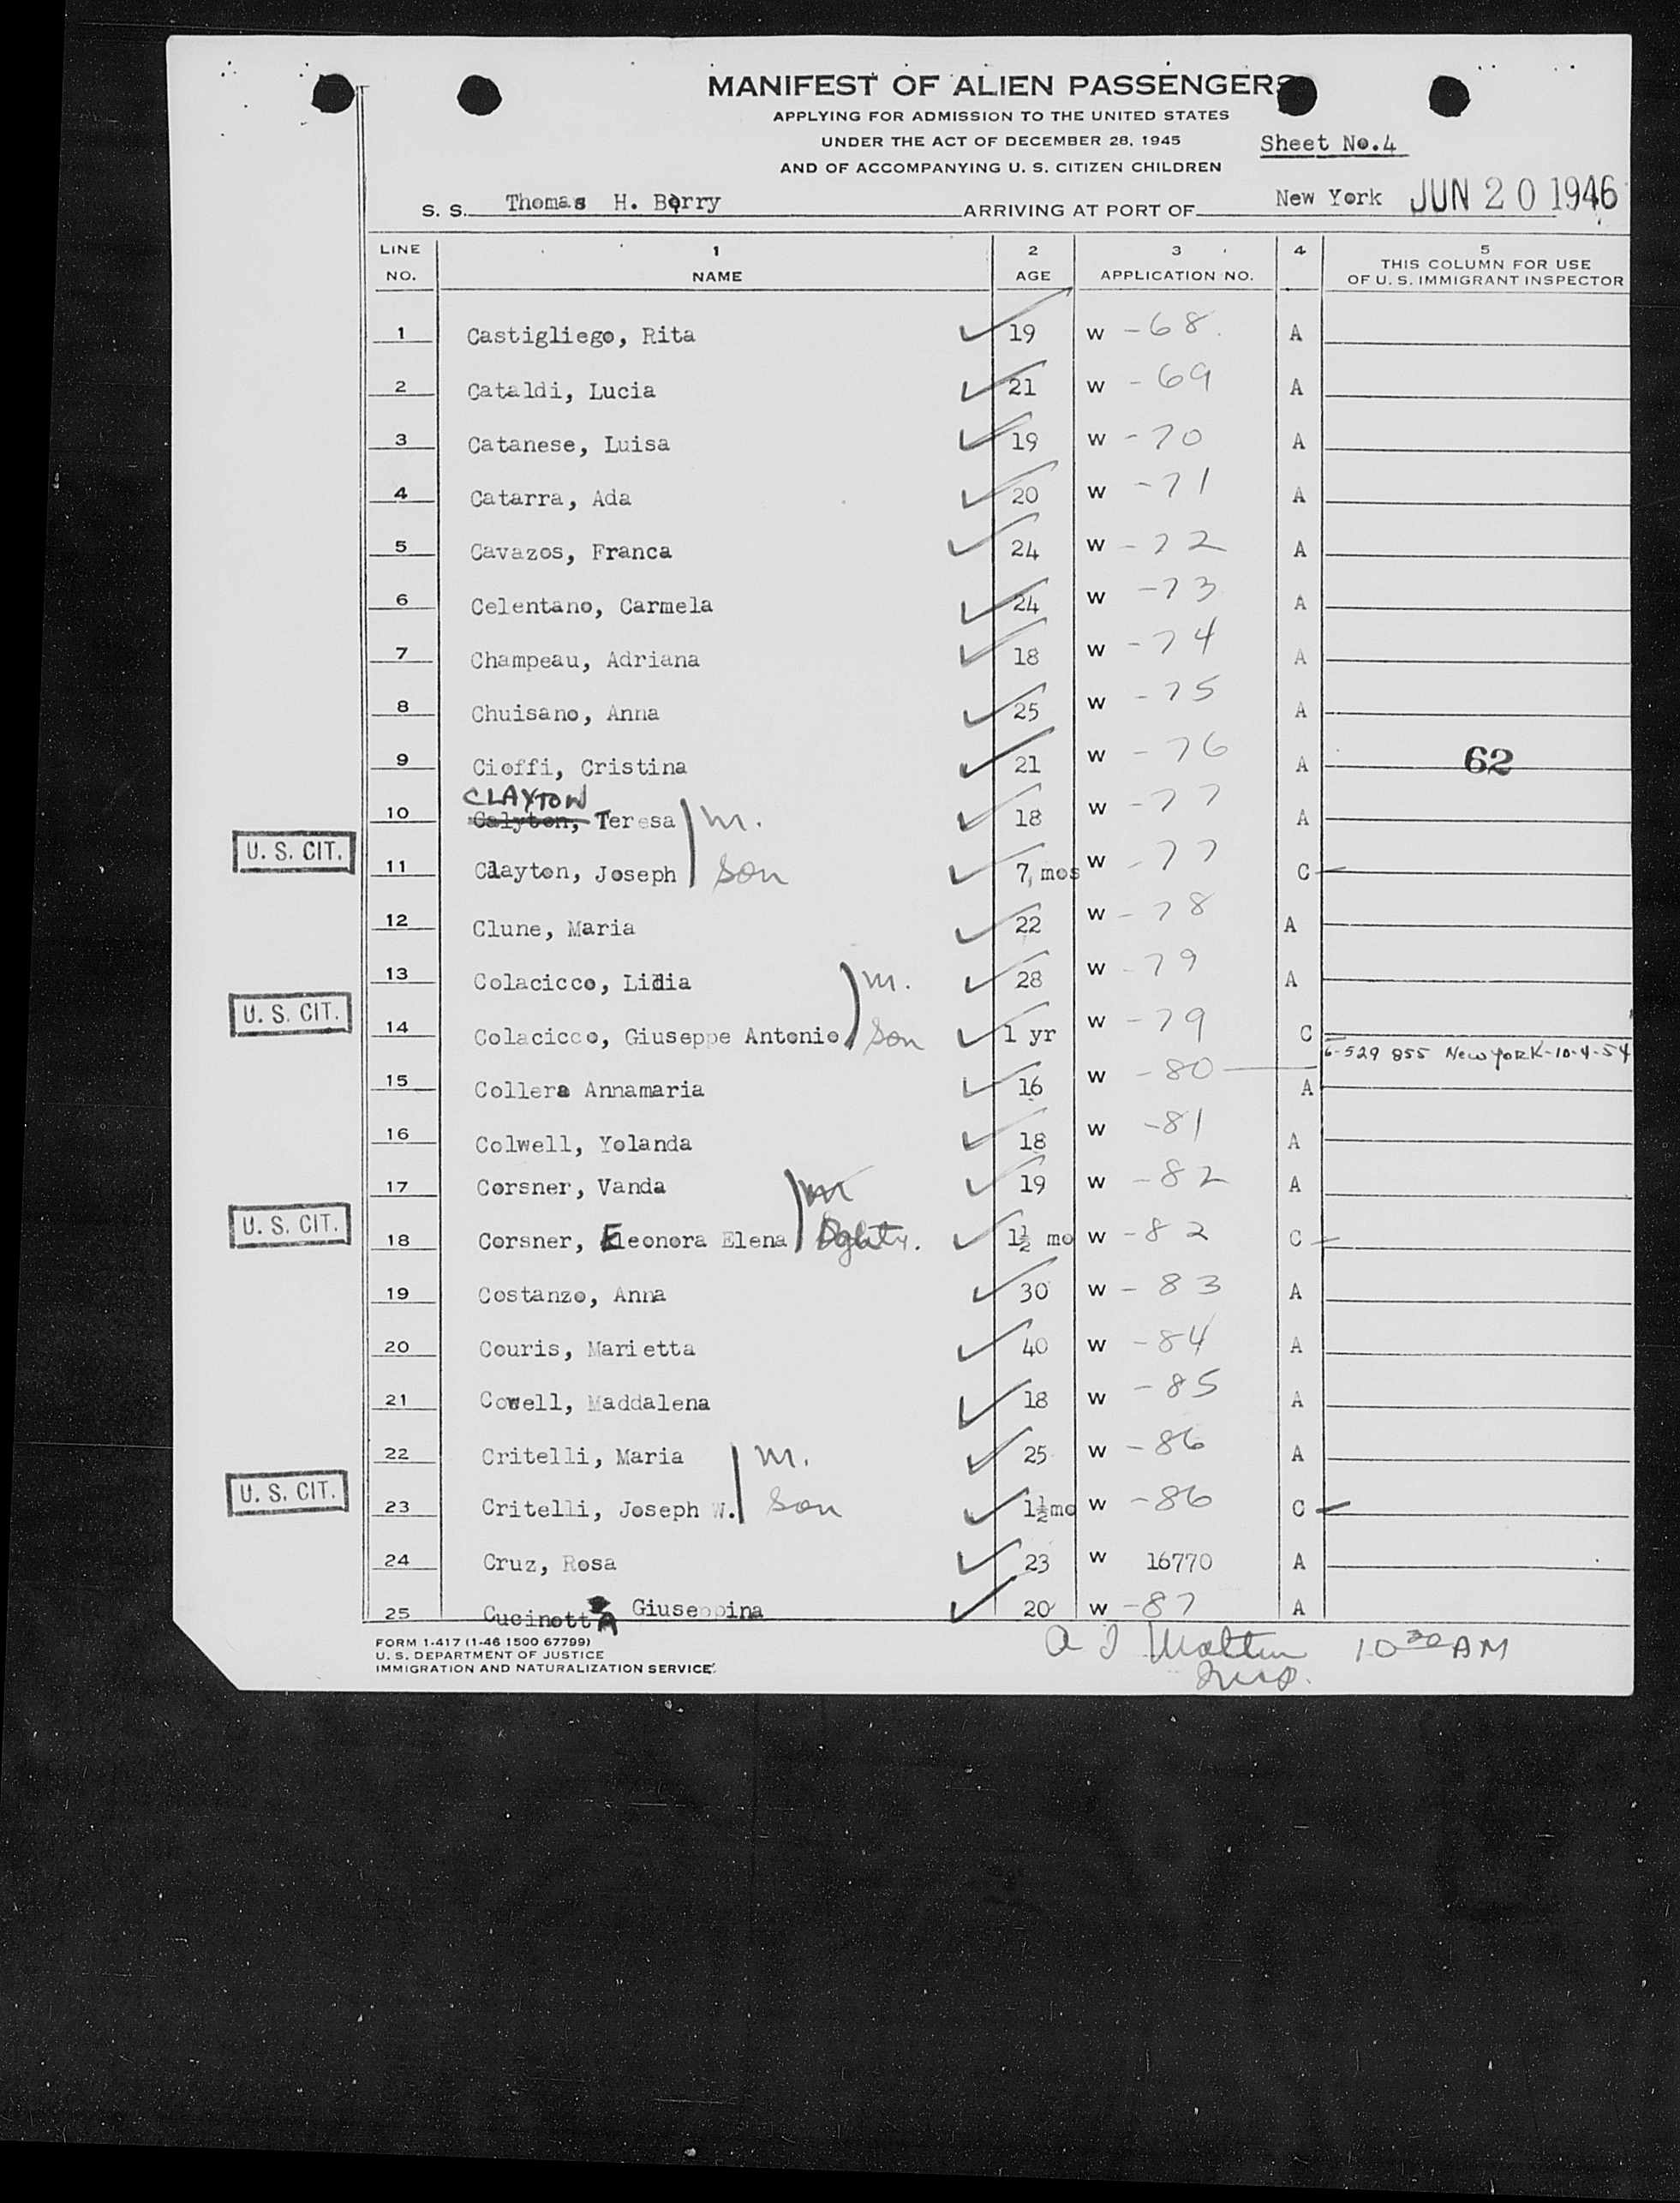 MANIFEST OF ALIEN PASSENGERS
APPLYING FOR ADMISSION TO THE UNITED STATES
UNDER THE ACT OF DECEMBER 28, 1945
Sheet No.4
AND OF ACCOMPANYING U. S. CITIZEN CHILDREN
S. S. Thomas H. Barry ARRIVING AT PORT OF New York JUN 20 1946
LINE NO. 1 NAME 2 AGE 3 APPLICATION NO. 4 5 THIS COLUMN FOR USE OF U. S. IMMIGRANT INSPECTOR
1 Castigliego, Rita 19 W -68. A
2 Cataldi, Lucia 21 W -69 A
3 Catanese, Luisa 19 W -70 A
4 Catarra, Ada 20 W -71 A
5 Cavazos, Franca 24 W -72 A
6 Celentano, Carmela 24 W -73 A
7 Champeau, Adriana 18 W -74 A
8 Chuisano, Anna 25 W -75 A
9 Cioffi, Cristina 21 W -76 A 62
CLAYTON
10 Calyton, Teresa m. 18 W -77 A
U. S. CIT. 11 Clayton, Joseph Son 7, mos W -77 C
12 Clune, Maria 22 W -78 A
13 Colacicco, Lidia m. 28 W -79 A
U. S. CIT. 14 Colacicco, Giuseppe Antonio Son 1 yr W -79 C
6-529 855 New York-10-4-54
15 Collera Annamaria 16 W -80 A
16 Colwell, Yolanda 18 W -81 A
17 Corsner, Vanda m 19 W -82 A
U. S. CIT. 18 Corsner, Eleonora Elena Dghtr. 1½ mo W -82 C
19 Costanzo, Anna 30 W -83 A
20 Couris, Marietta 40 W -84 A
21 Cowell, Maddalena 18 W -85 A
22 Critelli, Maria m. 25 W -86 A
U. S. CIT. 23 Critelli, Joseph W. Son 1½mo W -86 C
24 Cruz, Rosa 23 W 16770 A
25 CucinottA Giuseppina 20 W -87 A
FORM 1-417 (1-46 1500 67799)
U. S. DEPARTMENT OF JUSTICE
IMMIGRATION AND NATURALIZATION SERVICE
10 30 AM
Insp.